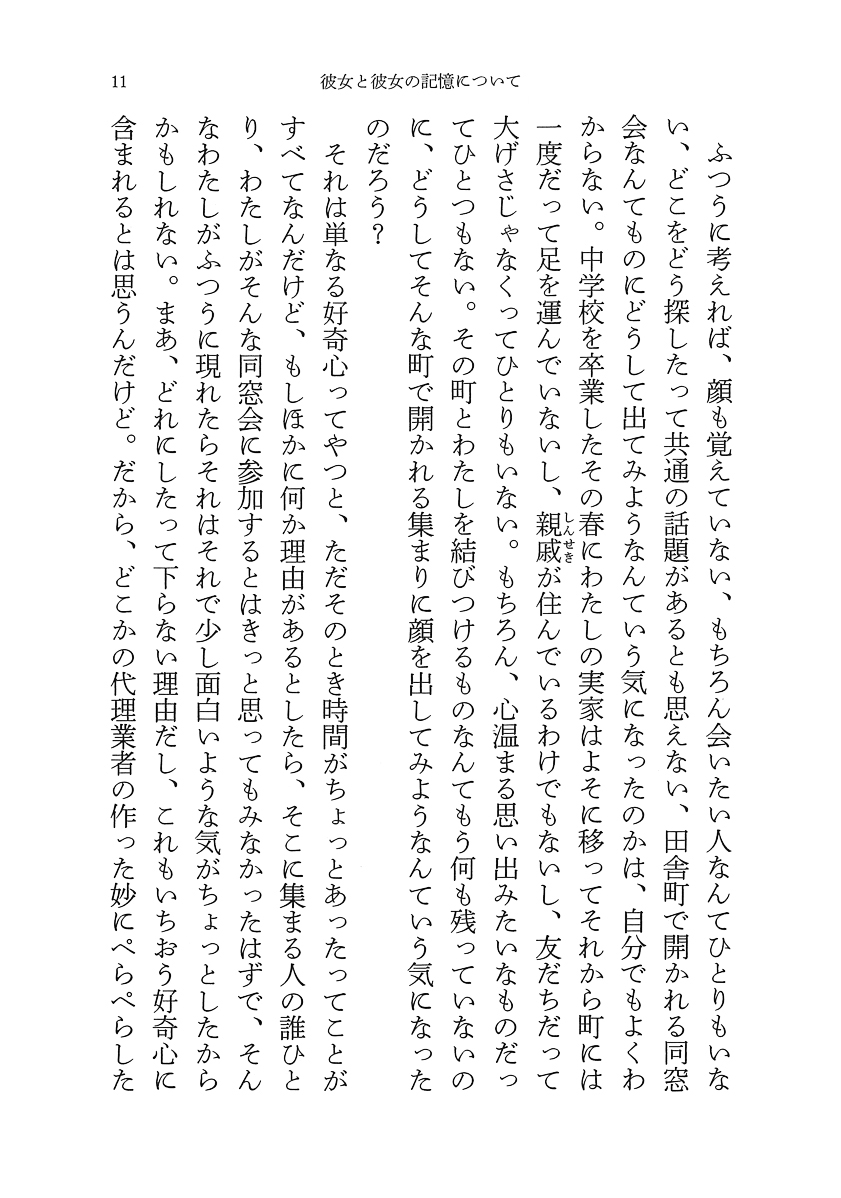 11
彼女と彼女の記憶について
ふつうに考えれば、顔も覚えていない、もちろん会いたい人なんてひとりもいな
い、どこをどう探したって共通の話題があるとも思えない、田舎町で開かれる同窓
会なんてものにどうして出てみようなんていう気になったのかは、自分でもよくわ
からない。中学校を卒業したその春にわたしの実家はよそに移ってそれから町には
一度だって足を運んでいないし、親戚が住んでいるわけでもないし、友だちだって
しんせき
大げさじゃなくってひとりもいない。もちろん、心温まる思い出みたいなものだっ
てひとつもない。その町とわたしを結びつけるものなんてもう何も残っていないの
に、どうしてそんな町で開かれる集まりに顔を出してみようなんていう気になった
のだろう?
それは単なる好奇心ってやつと、ただそのとき時間がちょっとあったってことが
すべてなんだけど、もしほかに何か理由があるとしたら、そこに集まる人の誰ひと
り、わたしがそんな同窓会に参加するとはきっと思ってもみなかったはずで、そん
なわたしがふつうに現れたらそれはそれで少し面白いような気がちょっとしたから
かもしれない。まあ、どれにしたって下らない理由だし、これもいちおう好奇心に
含まれるとは思うんだけど。だから、どこかの代理業者の作った妙にぺらぺらした